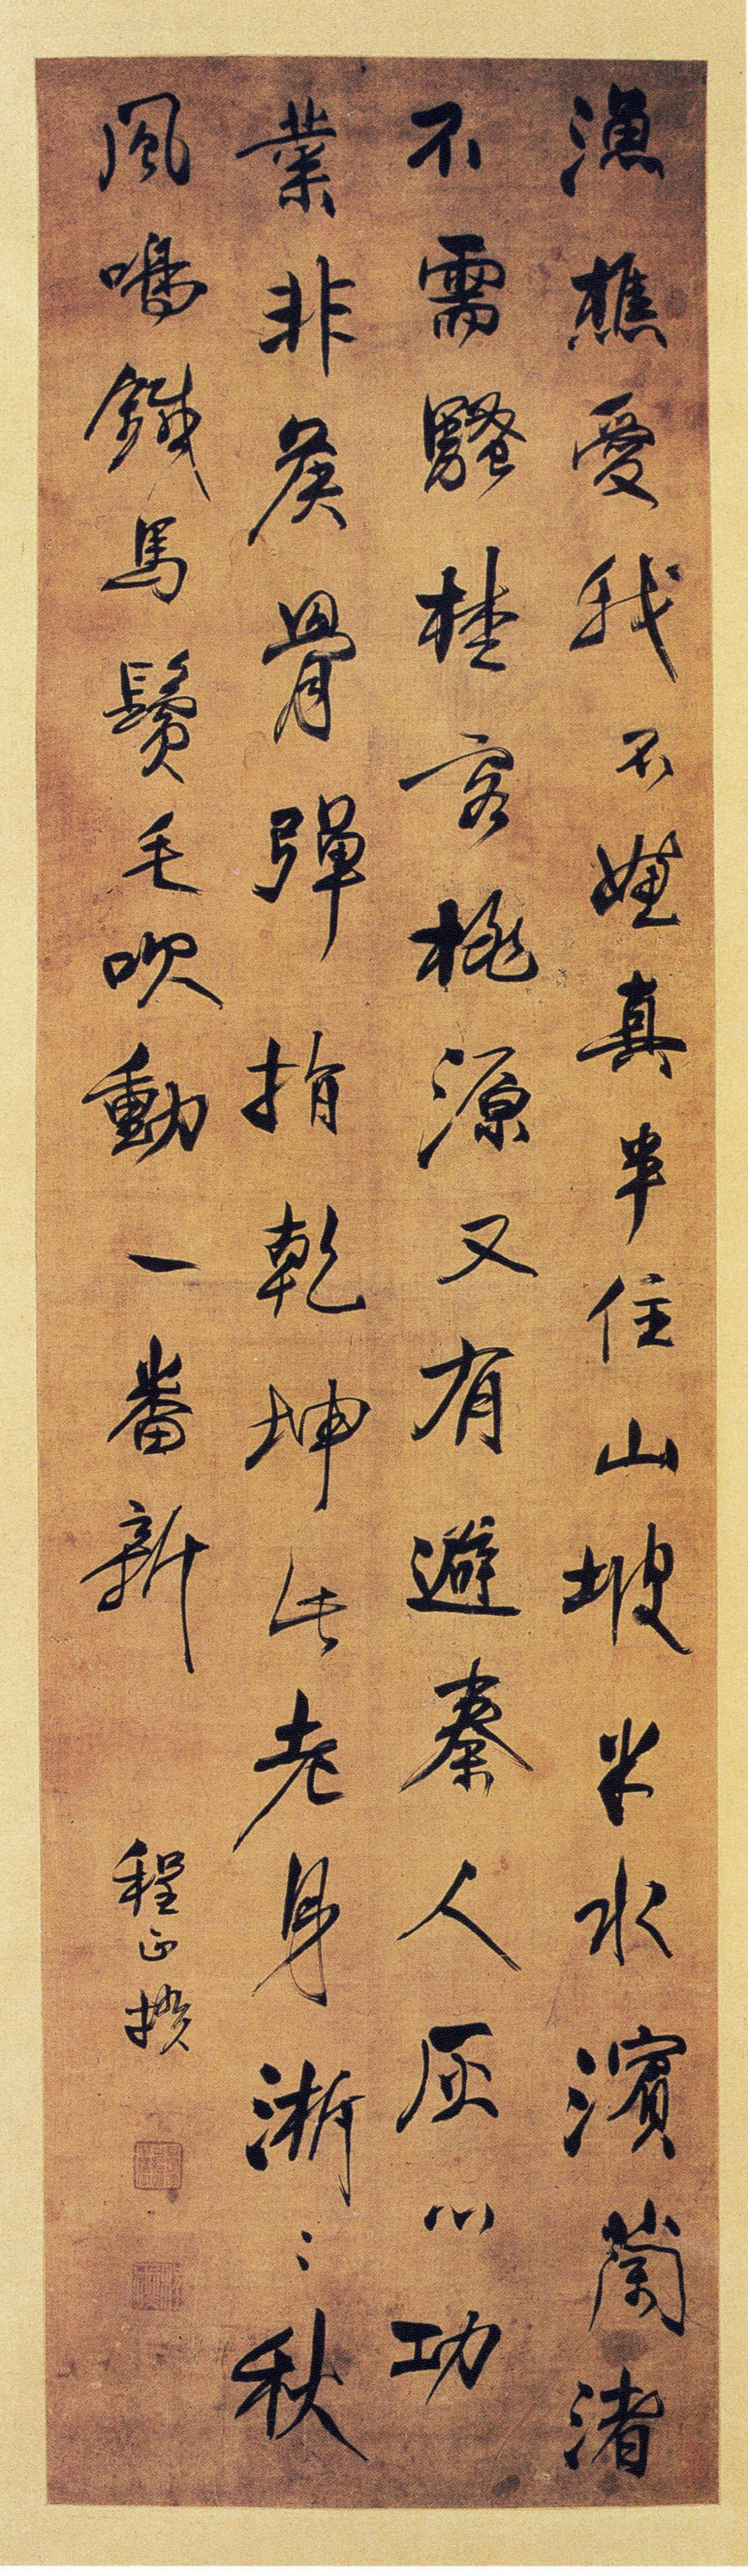 漁樵愛我不嫌真半住山坡半水濱蘭渚
不需騷楚客桃源又有避秦人功
業非侯骨彈指乾坤此老身淅〻秋
風鳴鐵馬鬢毛吹動一番新
程正揆